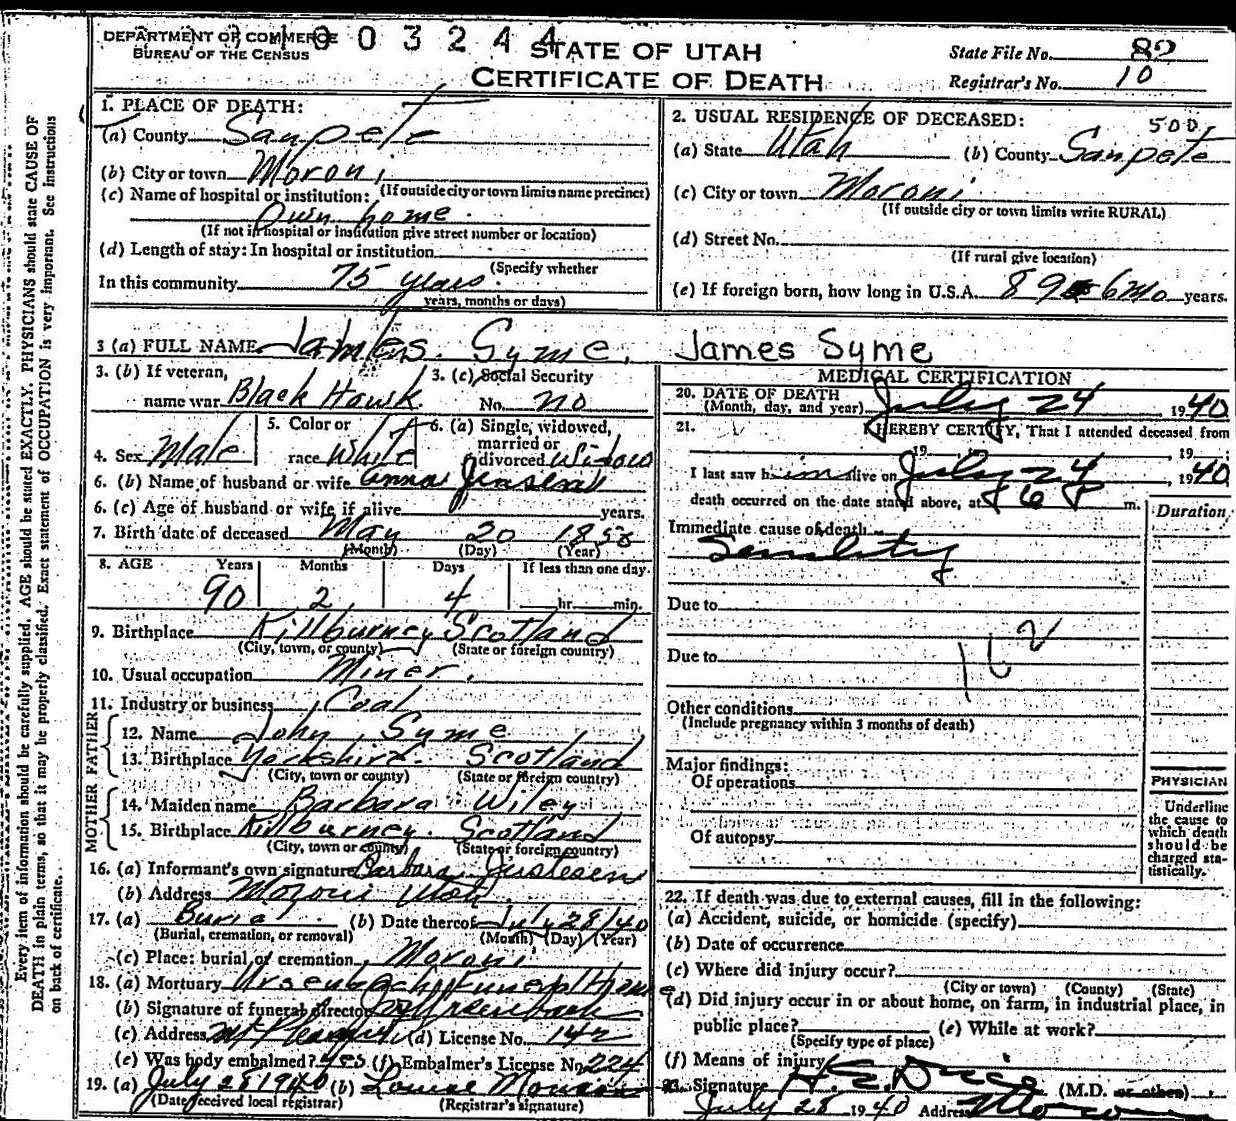 DEPARTMENT OF COMMERCE
BUREAU OF THE CENSUS
003244
STATE OF UTAH
CERTIFICATE OF DEATH
State File No. 82
Registrar's No. 10
Every item of information should be carefully supplied. AGE should be stated EXACTLY. PHYSICIANS should state CAUSE OF
DEATH in plain terms, so that it may be properly classified. Exact statement of OCCUPATION is very important. See instructions
on back of certificate.
1. PLACE OF DEATH:
(a) County Sanpete
(b) City or town Moroni
(If outside city or town limits name precinct)
(c) Name of hospital or institution:
Own home
(If not in hospital or institution give street number or location)
(d) Length of stay: In hospital or institution
(Specify whether
In this community 75 years
years, months or days)
2. USUAL RESIDENCE OF DECEASED: 500
(a) State Utah (b) County Sanpete
(c) City or town Moroni
(If outside city or town limits write RURAL)
(d) Street No.
(If rural give location)
(e) If foreign born, how long in U.S.A. 89 6 mo years.
3 (a) FULL NAME James Syme, James Syme
3. (b) If veteran,
name war Black Hawk
3. (c) Social Security
No. no
4. Sex Male
5. Color or
race White
6. (a) Single, widowed,
married or
divorced Widow
6. (b) Name of husband or wife Anna Jensen
6. (c) Age of husband or wife if alive years.
7. Birth date of deceased May 20 1850
(Month) (Day) (Year)
8. AGE Years Months Days If less than one day
90 2 4 hr. min.
9. Birthplace Killburney Scotland
(City, town, or county) (State or foreign country)
10. Usual occupation Miner.
11. Industry or business Coal
FATHER
12. Name John Syme
13. Birthplace Yorkshire. Scotland
(City, town or county) (State or foreign country)
MOTHER
14. Maiden name Barbara Wiley
15. Birthplace Killburney. Scotland
(City, town or county) (State or foreign country)
16. (a) Informant's own signature Barbara Justesen
(b) Address Moroni Utah
17. (a) Burial (b) Date thereof July 28/40
(Burial, cremation, or removal) (Month) (Day) (Year)
(c) Place: burial or cremation Moroni
18. (a) Mortuary Ursenbach Funeral Home
(b) Signature of funeral director Ursenbach
(c) Address Mt Pleasant (d) License No. 142
(e) Was body embalmed? yes (f) Embalmer's License No. 224
19. (a) July 28 1940 (b) Louise Monson
(Date received local registrar) (Registrar's signature)
MEDICAL CERTIFICATION
20. DATE OF DEATH
(Month, day, and year) July 24, 1940
21. I HEREBY CERTIFY, That I attended deceased from
, 19 , 19
I last saw him alive on July 24, 1940
death occurred on the date stated above, at 6 P m.
Duration
Immediate cause of death
Senility
Due to
162
Due to
Other conditions
(Include pregnancy within 3 months of death)
Major findings:
Of operations
Of autopsy
PHYSICIAN
Underline
the cause to
which death
should be
charged sta-
tistically.
22. If death was due to external causes, fill in the following:
(a) Accident, suicide, or homicide (specify)
(b) Date of occurrence
(c) Where did injury occur?
(City or town) (County) (State)
(d) Did injury occur in or about home, on farm, in industrial place, in
public place? (e) While at work?
(Specify type of place)
(f) Means of injury
23. Signature (M.D. or other)
July 28 1940 Address Moroni